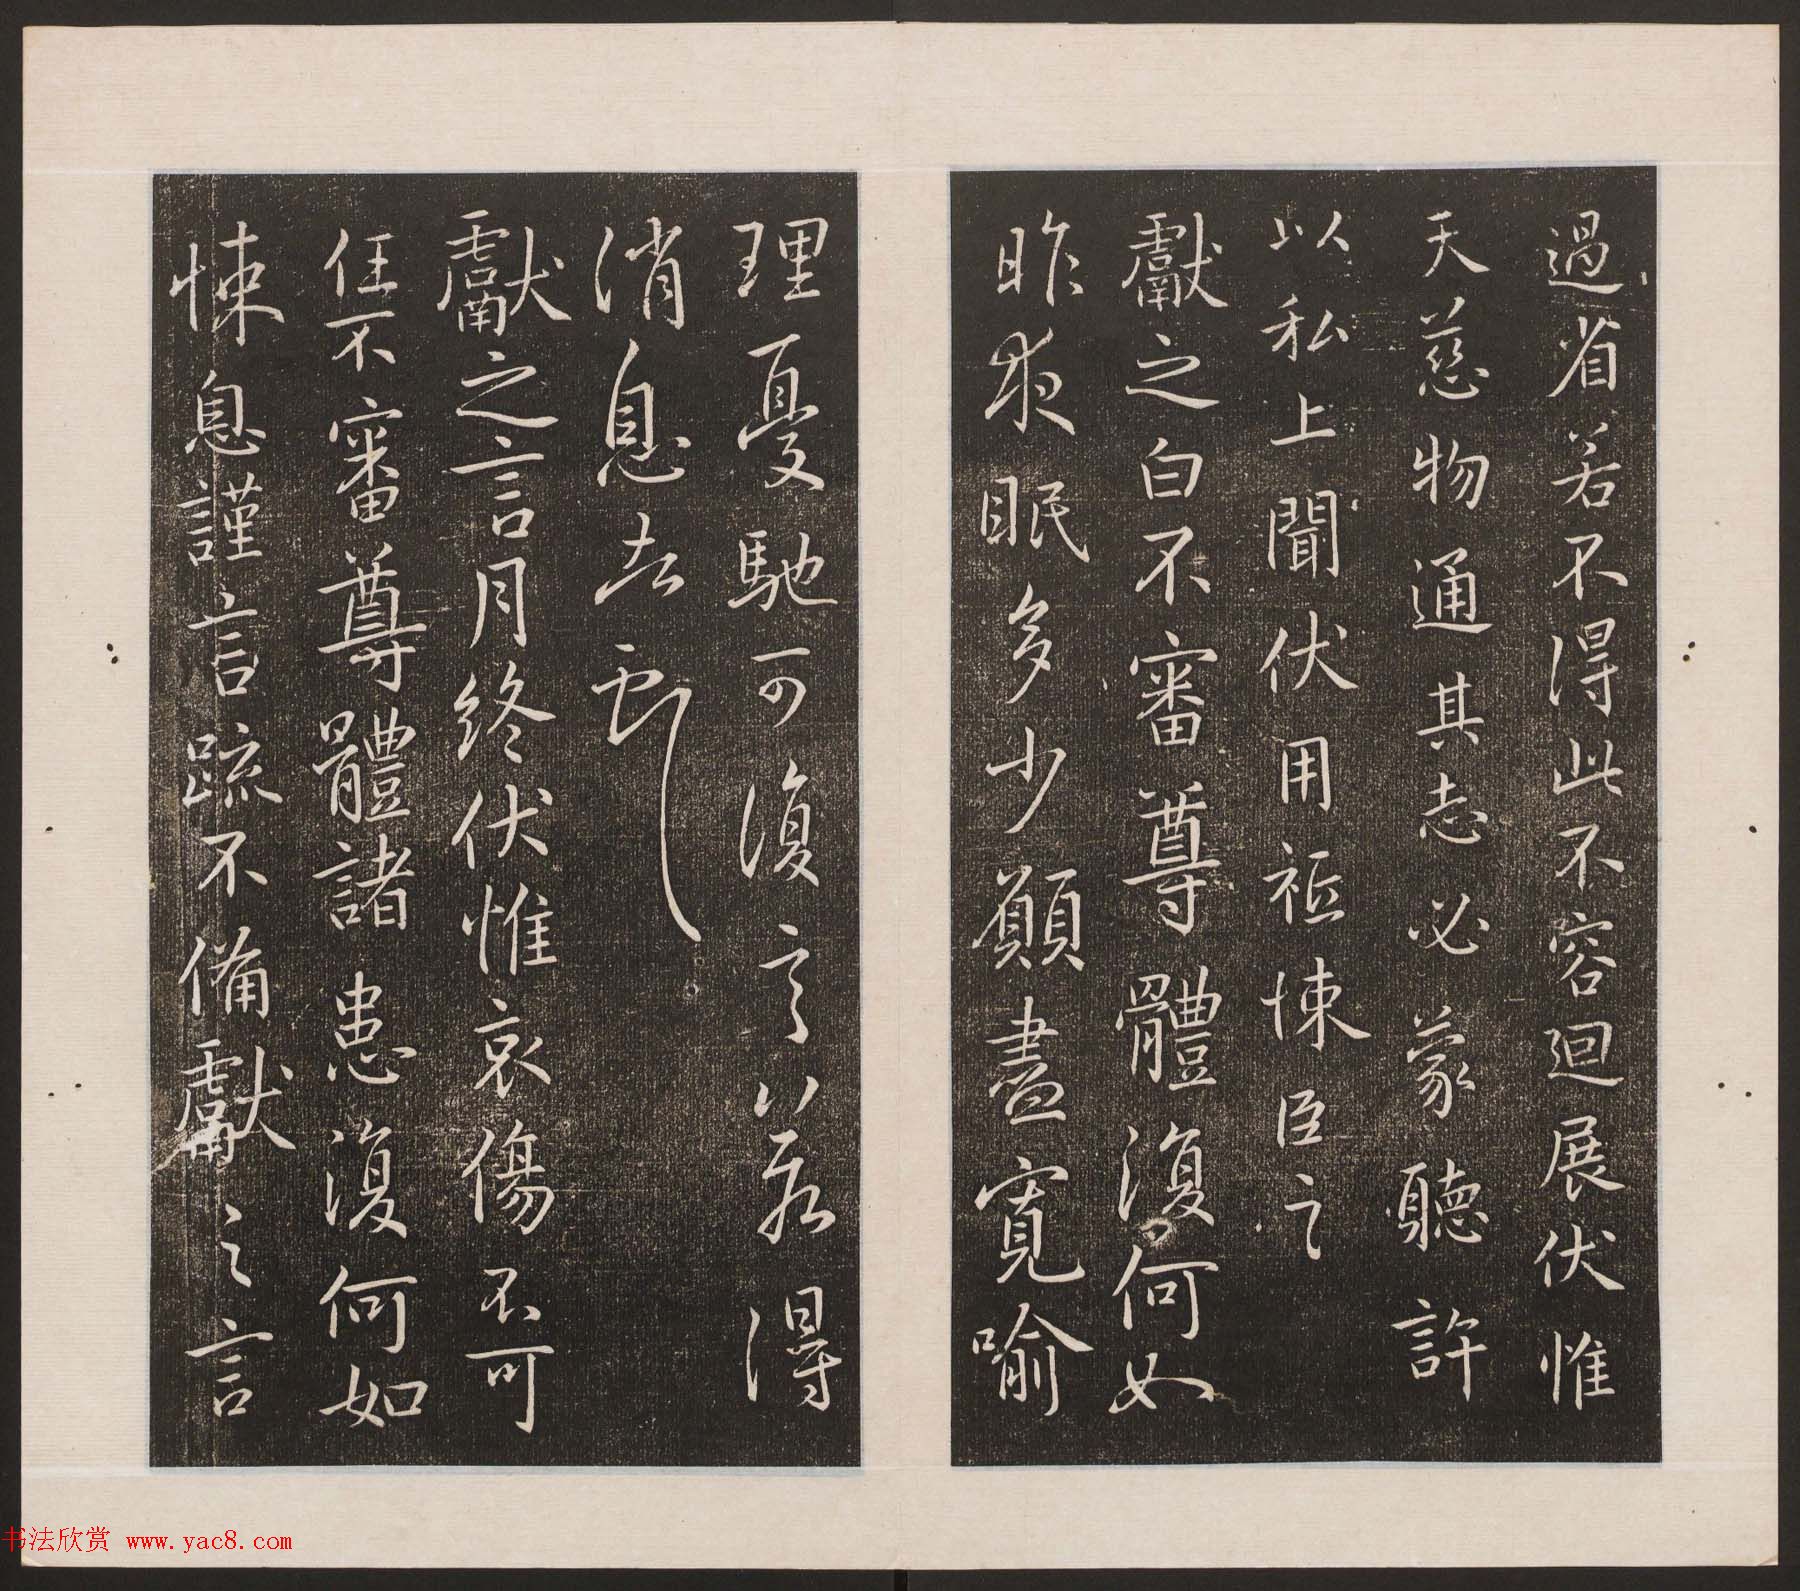 過省若不得此不容迴展伏惟
天慈物通其志必蒙聽許
以私上聞伏用祗悚臣之
獻之白不審尊體復何如
昨夜眠多少願盡寬喻
理憂馳可復言不審得
消息
獻之言月終伏惟哀傷不可
任不審尊體諸患復何如
悚息謹言疏不備獻之言
书法欣赏 www.yac8.com